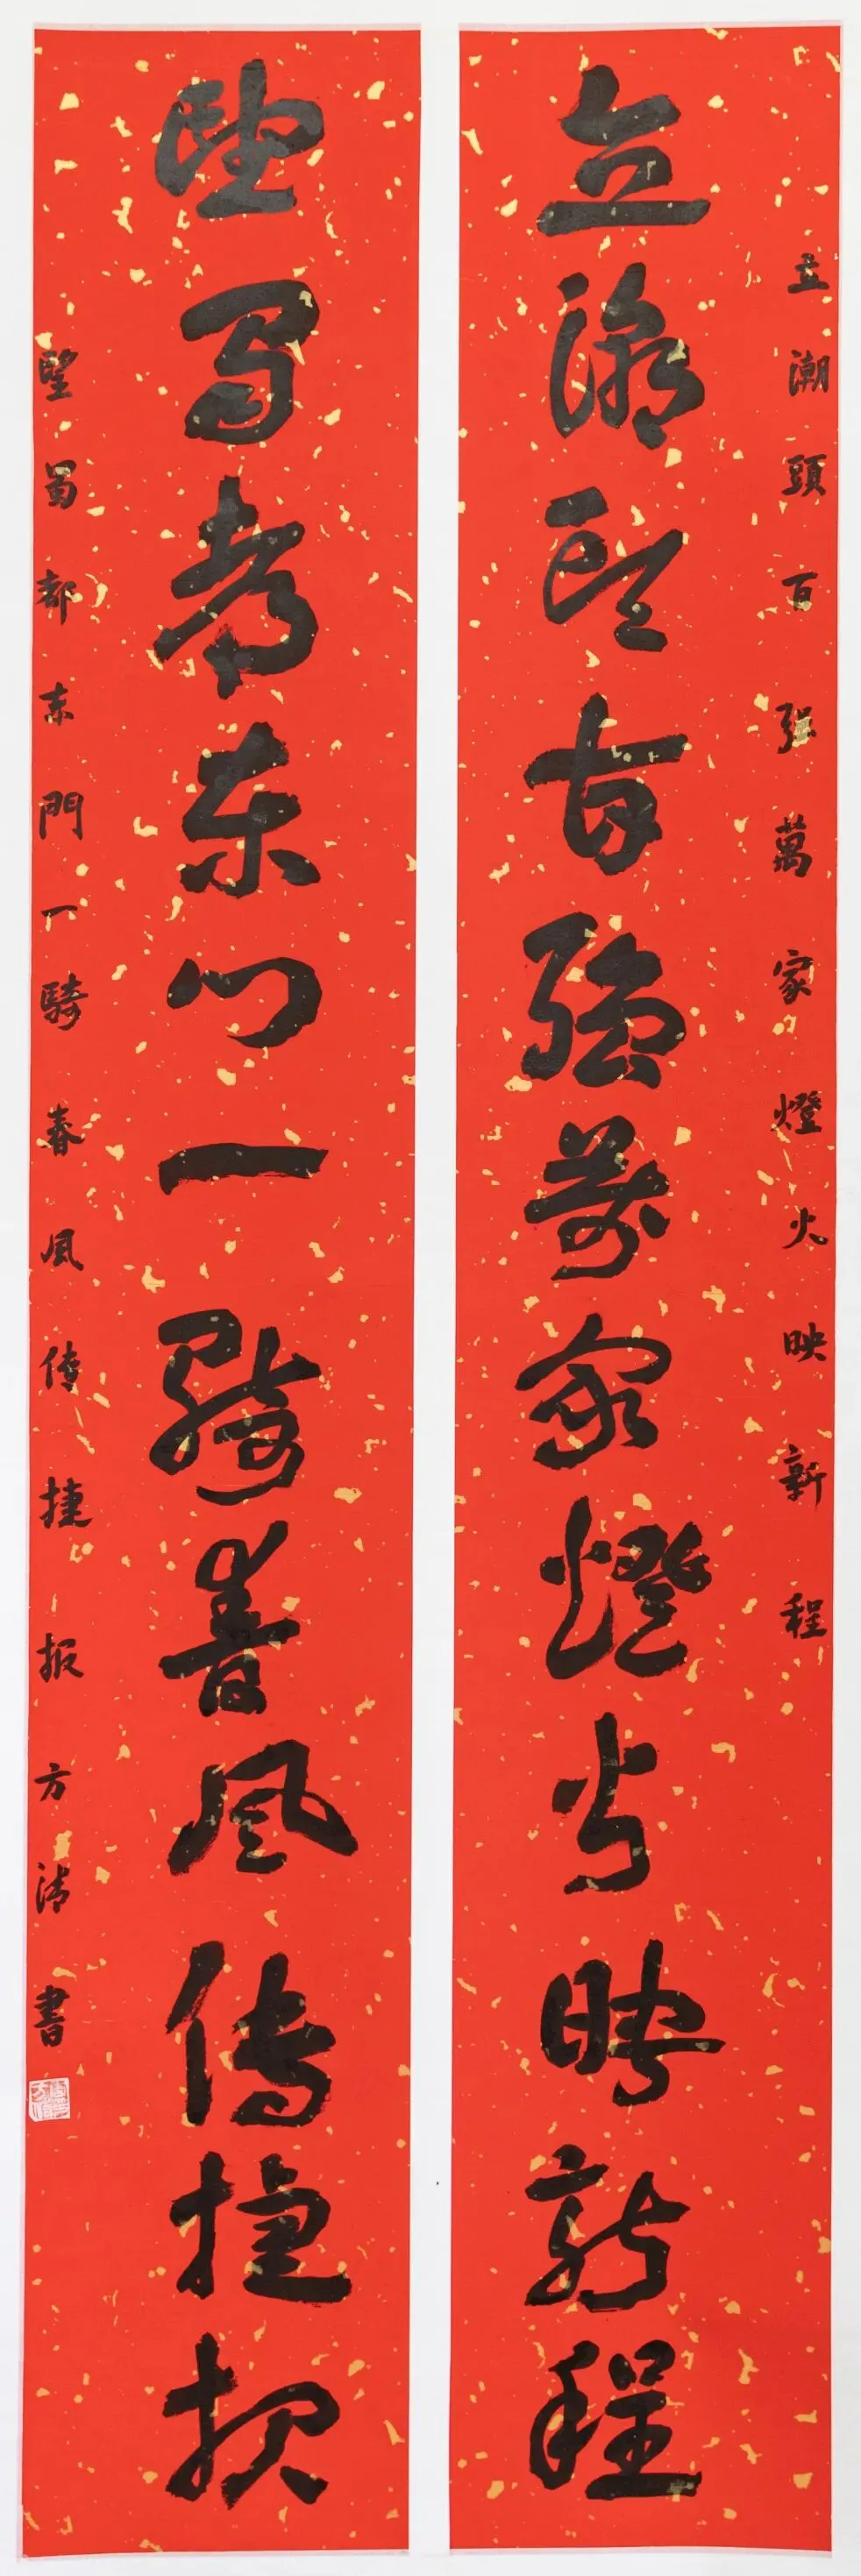 立潮頭百强萬家燈火映新程
立潮頭百强萬家燈火映新程
望蜀都東門一騎春風傳捷報
望蜀都东門一騎春風傳捷报 方清書